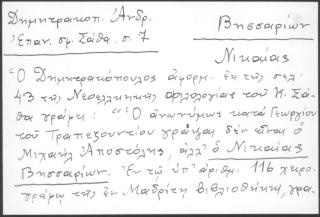 Δημητρακοπ. Ἀνδρ.
Ἐπαν. σμ. Σάθα. σ. 7
Βησσαρίων
Νικαίας
Ὁ Δημητρακόπουλος ἀφορμ. ἐκ τῆς σελ.
43 τῆς Νεοελληνικῆς φιλολογίας τοῦ Κ. Σά-
θα γράφει : "Ὁ ἀνωνύμως κατὰ Γεωργίου
τοῦ Τραπεζουντίου γράψας δὲν εἶναι ὁ
Μιχαὴλ Ἀποστόλης, ἀλλ' ὁ Νικαίας
Βησσαρίων. Ἐν τῷ ὑπ' ἀριθμ. 116 χειρο-
γράφῳ τῆς ἐν Μαδρίτῃ βιβλιοθήκης, γρα-